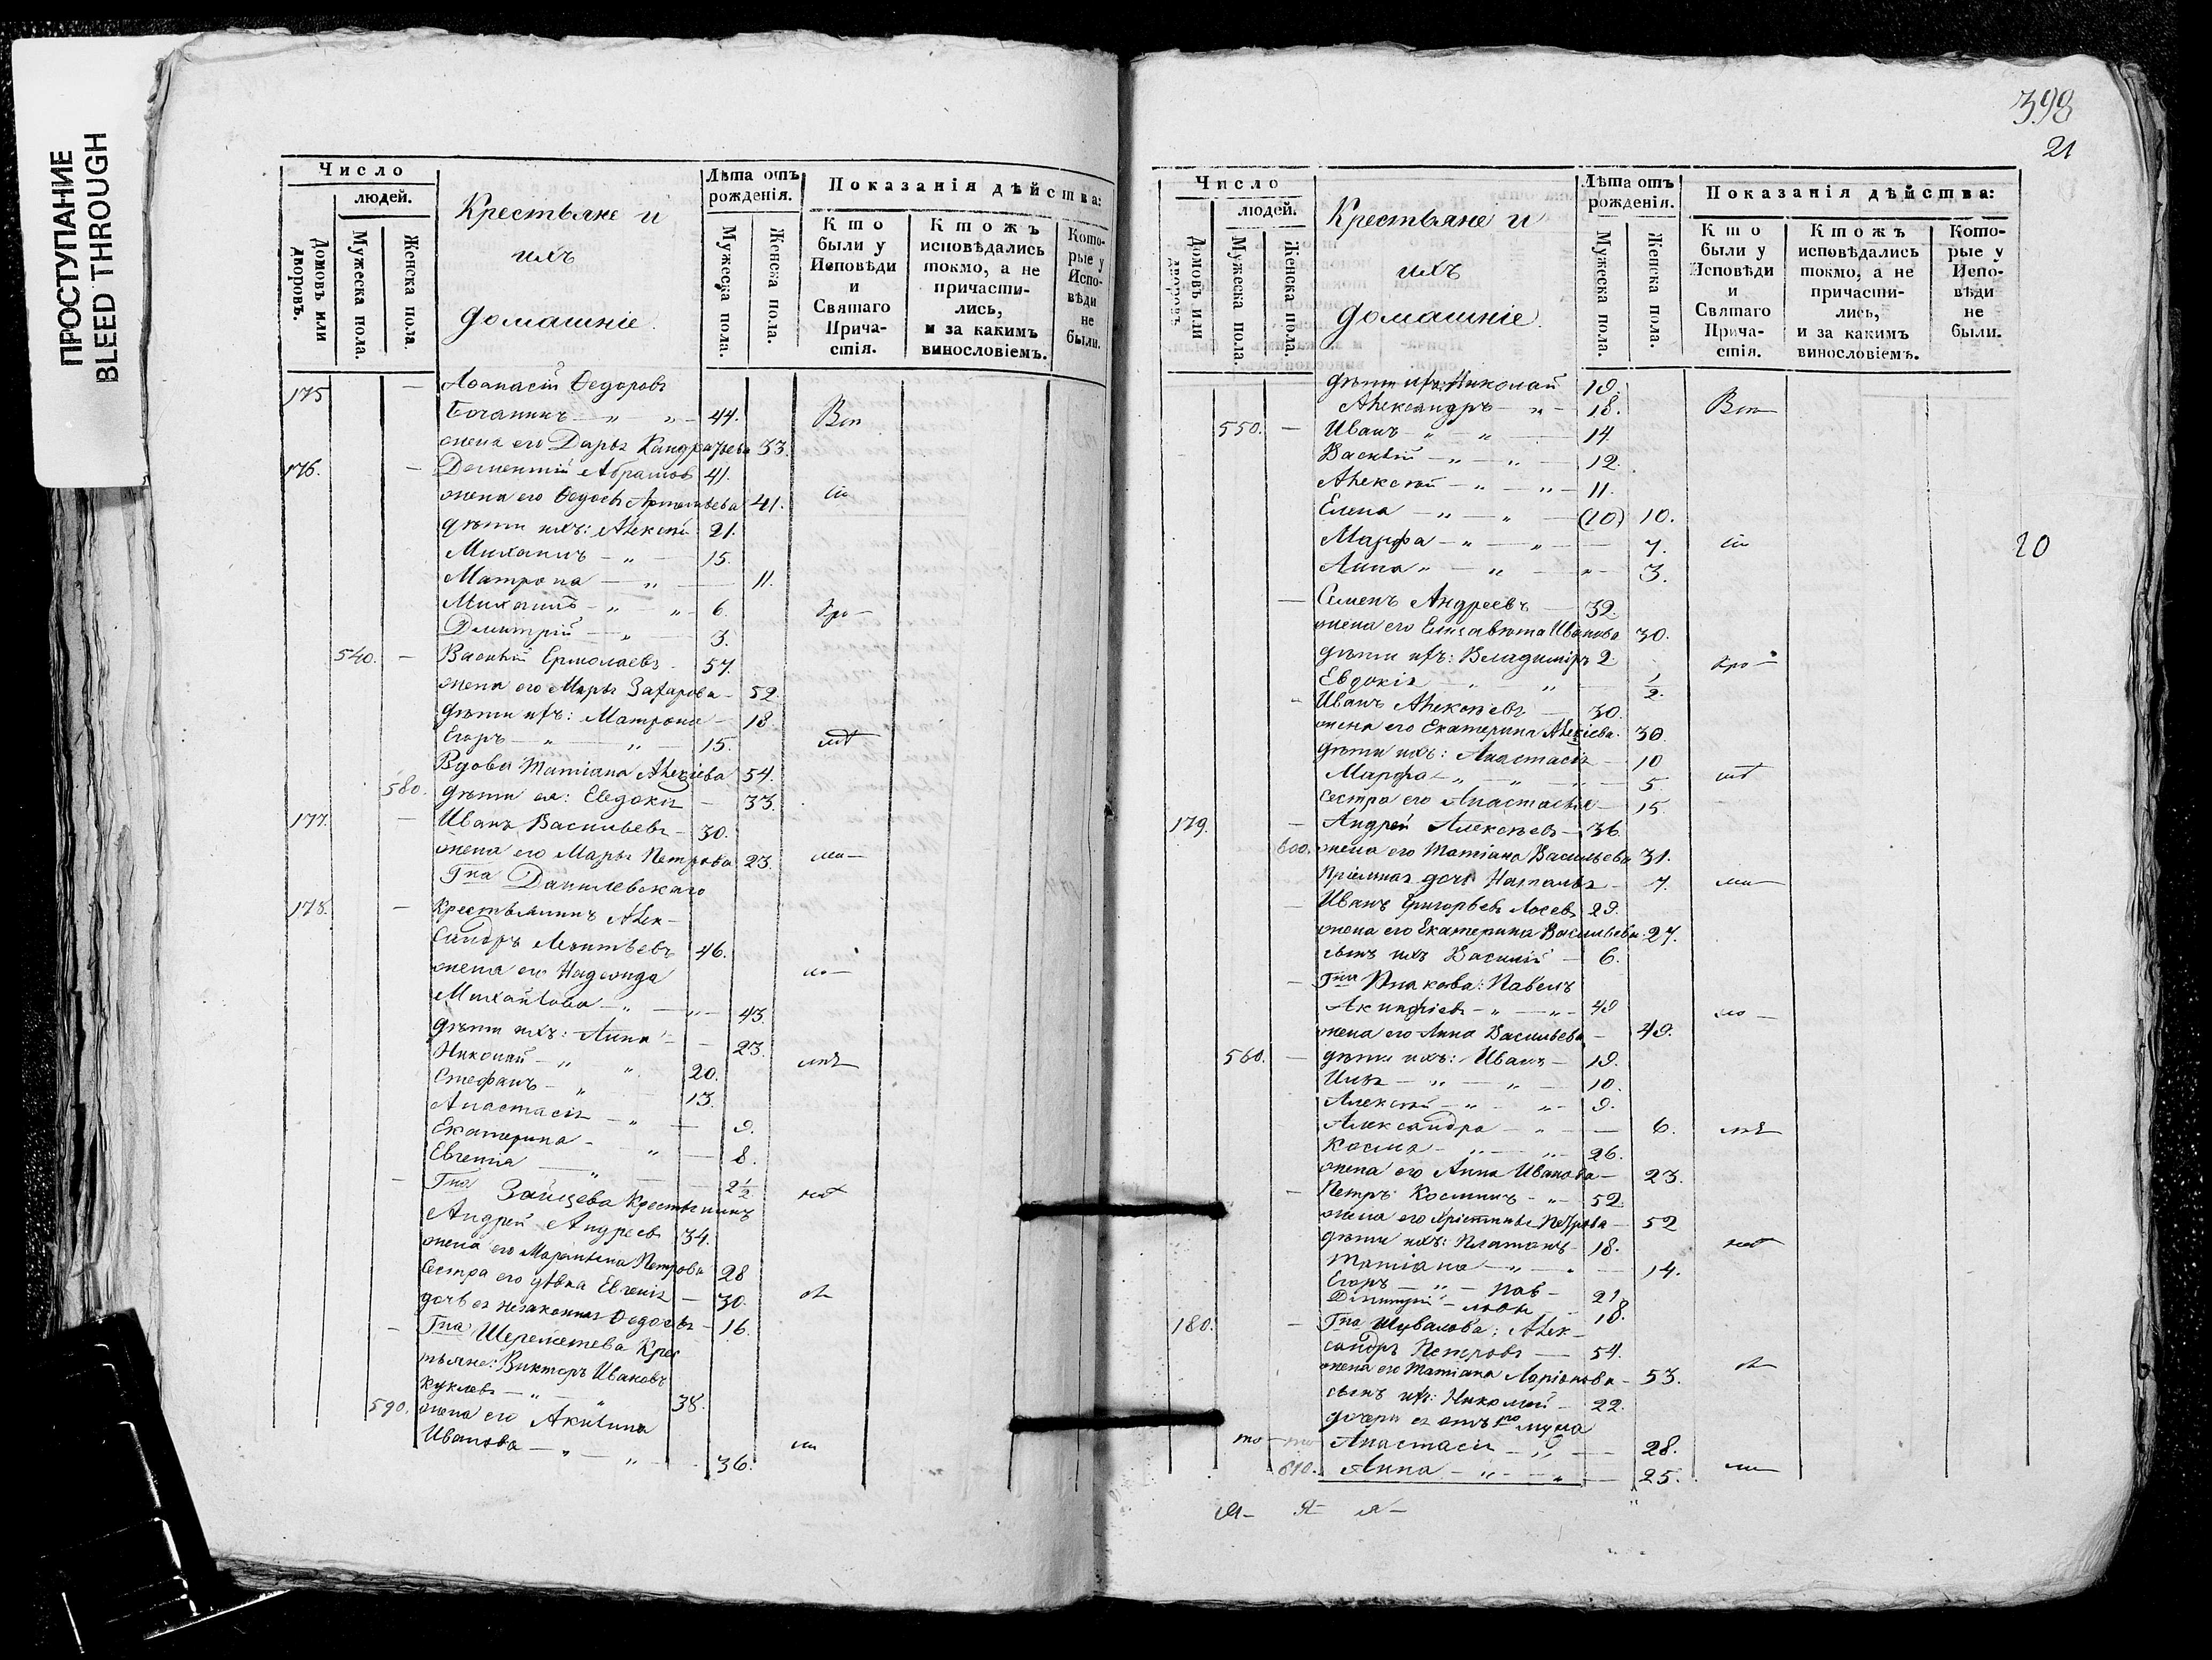 ПРОСТУПАНИЕ
BLEED THROUGH
Число
людей.
Домовъ или дворовъ.
Мужеска пола.
Женска пола.
Крестьяне и
ихъ
домашніе.
Лѣта отъ рожденія.
Мужеска пола.
Женска пола.
Показанія дѣйства:
Кто были у Исповѣди и Святаго Причастія.
Ктожъ исповѣдались токмо, а не причастились, и за какимъ винословіемъ.
Которые у Исповѣди не были.
175 — Аѳанасій Ѳедоровъ
— " " — 44.
жена его Дарья Кандратьева 33.
176. — Дементій Абрамов 41.
жена его Ѳедосья Артемьева 41.
дѣти ихъ: Алексѣй 21.
Михаилъ — " 15.
Матрона — " — 11.
Михаилъ — " — " — 6.
Димитрій — " 3.
540. — Василій Ермолаевъ 57.
жена его Марья Захарова — 52
дѣти ихъ: Матрона — 18.
Егоръ — " — " — 15.
Вдова Татіана Алексіева 54.
580. дѣти ея: Евдокія — 33.
177. — Иванъ Васильевъ — 30.
жена его Марья Петрова 23.
Гна Данилевскаго
178. — Крестьянинъ Алек-
сандръ Леонтьевъ 46.
жена его Надежда
Михайлова — " — " — 43.
дѣти ихъ: Анна — 23.
Николай — " " 20.
Стефанъ — " 13.
Анастасія — " — 9.
Екатерина — " — 8.
Евгенія — " — 2½
— Гна Зайцева Крестьянинъ
Андрей Андреевъ 34.
жена его Петрова 28
Сестра его дѣвка Евгенія — 30.
дочь ея незаконная Ѳедосья — 16.
— Гна Шереметева Крес
тьяне: Викторъ Ивановъ
Куклевъ — " " 38.
590. жена его Акилина
Иванова — " — " 36.
398
21
Число
людей.
Домовъ или дворовъ.
Мужеска пола.
Женска пола.
Крестьяне и
ихъ
домашніе.
Лѣта отъ рожденія.
Мужеска пола.
Женска пола.
Показанія дѣйства:
Кто были у Исповѣди и Святаго Причастія.
Ктожъ исповѣдались токмо, а не причастились, и за какимъ винословіемъ.
Которые у Исповѣди не были.
дѣти ихъ: Николай 19.
Александръ — " — 18.
550. — Иванъ — " — " — 14.
Василій — " — " — 12.
Алексѣй — " — " — 11.
Елена — " — " — (10) 10.
Марфа — " — " — 7.
Анна " — " — " — 3.
20
— Семенъ Андреевъ — 32.
жена его Елисавета Иванова 30.
дѣти ихъ: Владиміръ 2
Евдокія — " — ½.
— Иванъ Алексѣевъ — 30.
жена его Екатерина Алексіева 30.
дѣти ихъ: Анастасія — 10
Марфа — " — " — 5.
Сестра его Анастасія — 15.
179. — Андрей Алексѣевъ — 36.
600. жена его Татіана Васильева 31.
Пріемная дочь Наталья — 7.
— Иванъ Григорьевъ Лосевъ 29.
жена его Екатерина Васильева 27.
сынъ ихъ Василій — 6.
— Гна Павелъ
Акинфіевъ — " — " — 49
жена его Анна Васильева — 49.
560. — дѣти ихъ: Иванъ — 19.
Илья — " — " — 10.
Алексѣй — " — " — 9.
Александра — " — — 6.
Косма — " — " — 26.
жена его Анна Иванова — 23.
— Петръ Косминъ — " — 52
жена его Христина Петрова — 52
дѣти ихъ: Платонъ — 18.
Татіана — " — — 14.
Егоръ — " — Пав — 21.
Димитрій — ловы — 18.
180. — Гна Шувалова: Алек-
сандръ Петровъ — 54.
жена его Татіана Ларіонова — 53.
сынъ ихъ: Николай — 22.
дочери ея отъ 1го мужа
Анастасія — " — 28.
610. Анна — " — " — 25.